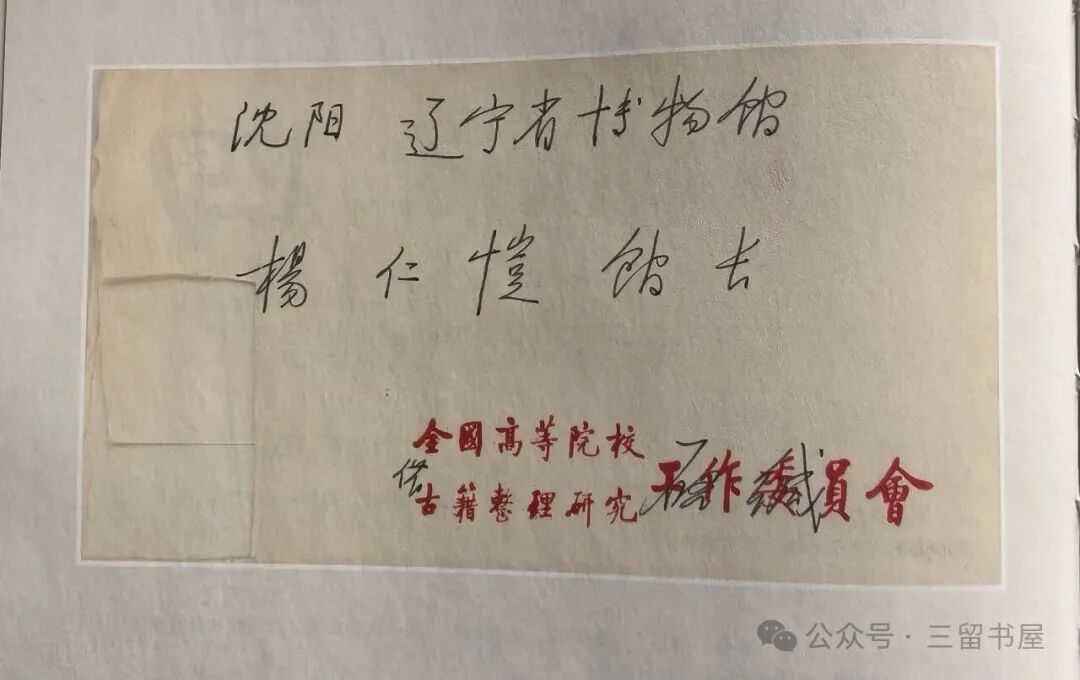 沈阳 辽宁省博物馆
楊仁愷馆长
全國高等院校
古籍整理研究
工作委員會
公众号·三留书屋